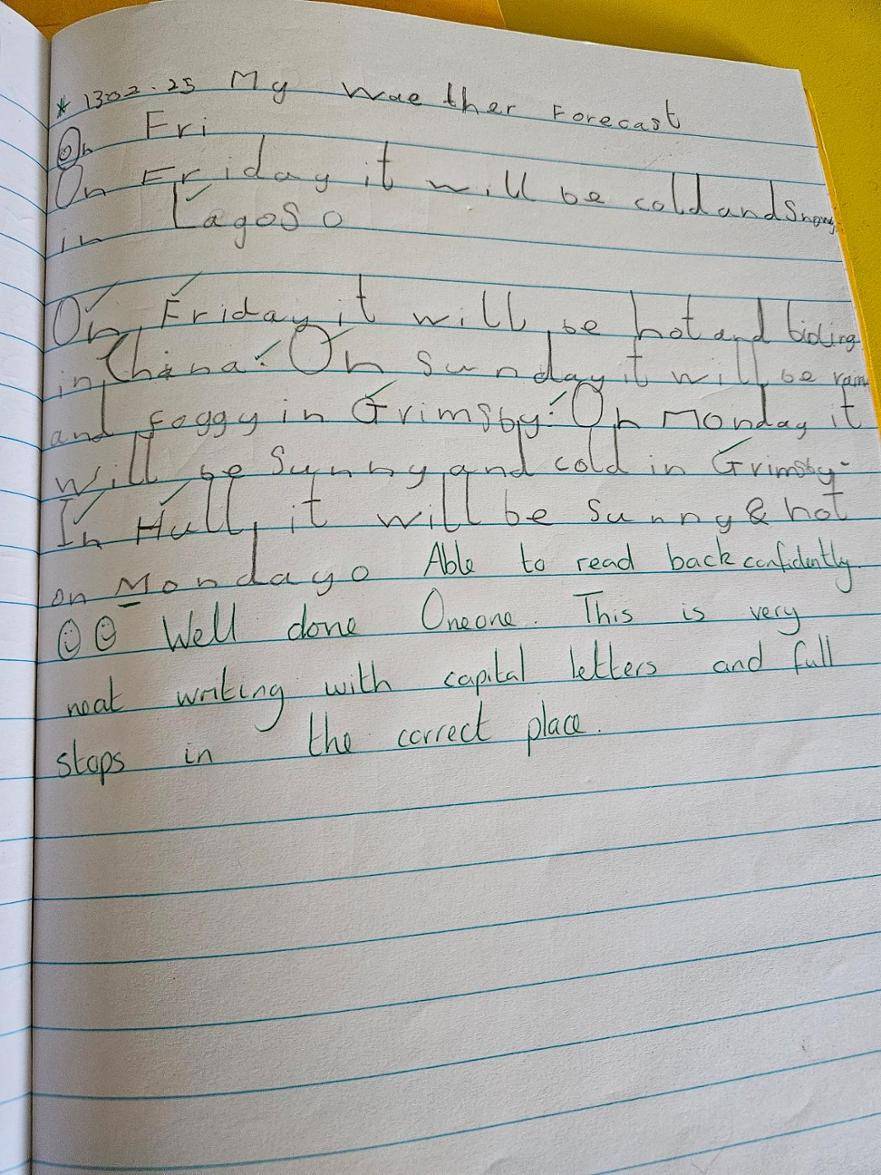 * 1302.25 My Wae ther Forecast
On Fri
On Friday it will be cold and Snowy
in Lagos o
On Friday it will be hot and
in China. On Sunday it will be rain
and foggy in Grimsby. On Monday it
will be Sunny and cold in Grimsby.
In Hull, it will be Sunny & hot
on Monday o Able to read back confidently.
☺ ☺ Well done Oneone. This is very
neat writing with capital letters and full
stops in the correct place.